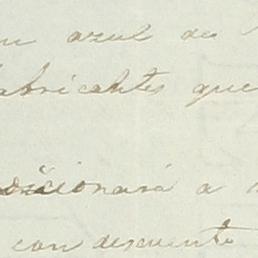 azul de
fabricantes que
dicionará a
con descuento